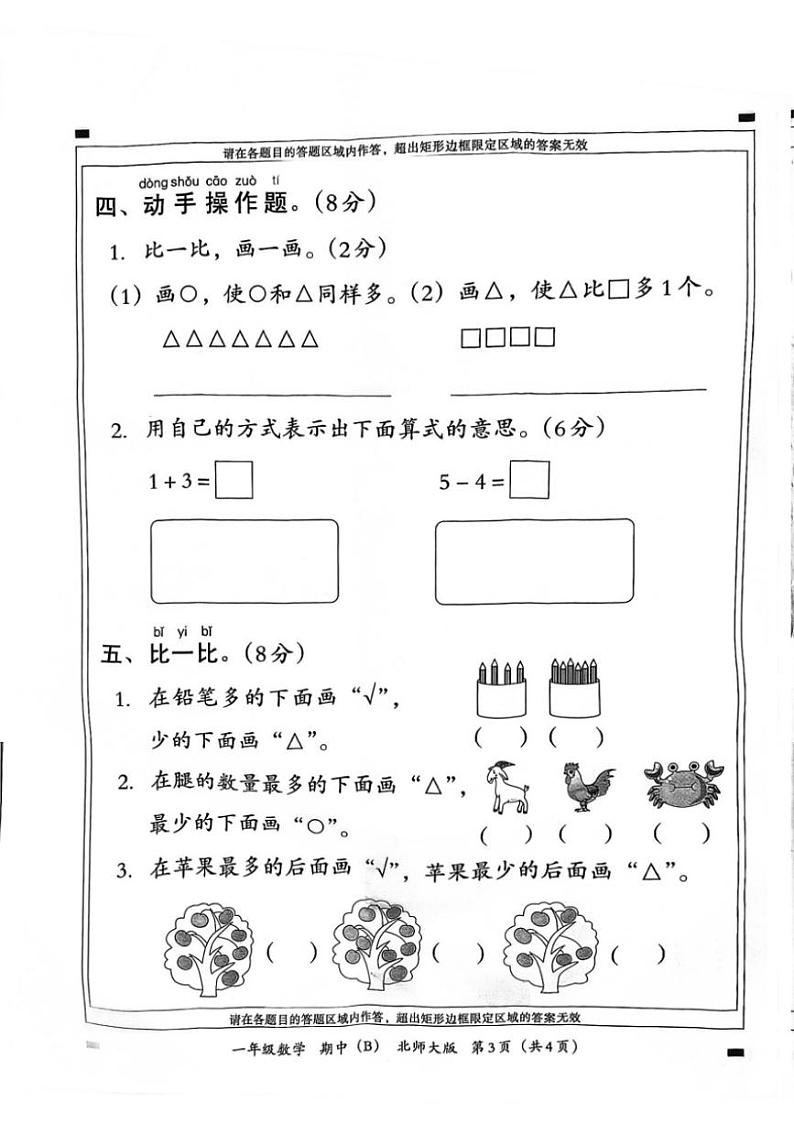 请在各题目的答题区域内作答，超出矩形边框限定区域的答案无效
dòng shǒu cāo zuò tí
四、动手操作题。（8分）
1. 比一比，画一画。（2分）
（1）画○，使○和△同样多。（2）画△，使△比□多1个。
△△△△△△△ □□□□
2. 用自己的方式表示出下面算式的意思。（6分）
1+3=□ 5-4=□
bǐ yi bǐ
五、比一比。（8分）
1. 在铅笔多的下面画“√”，
少的下面画“△”。 （ ）（ ）
2. 在腿的数量最多的下面画“△”，
最少的下面画“○”。 （ ）（ ）（ ）
3. 在苹果最多的后面画“√”，苹果最少的后面画“△”。
（ ） （ ） （ ）
请在各题目的答题区域内作答，超出矩形边框限定区域的答案无效
一年级数学 期中（B） 北师大版 第3页（共4页）